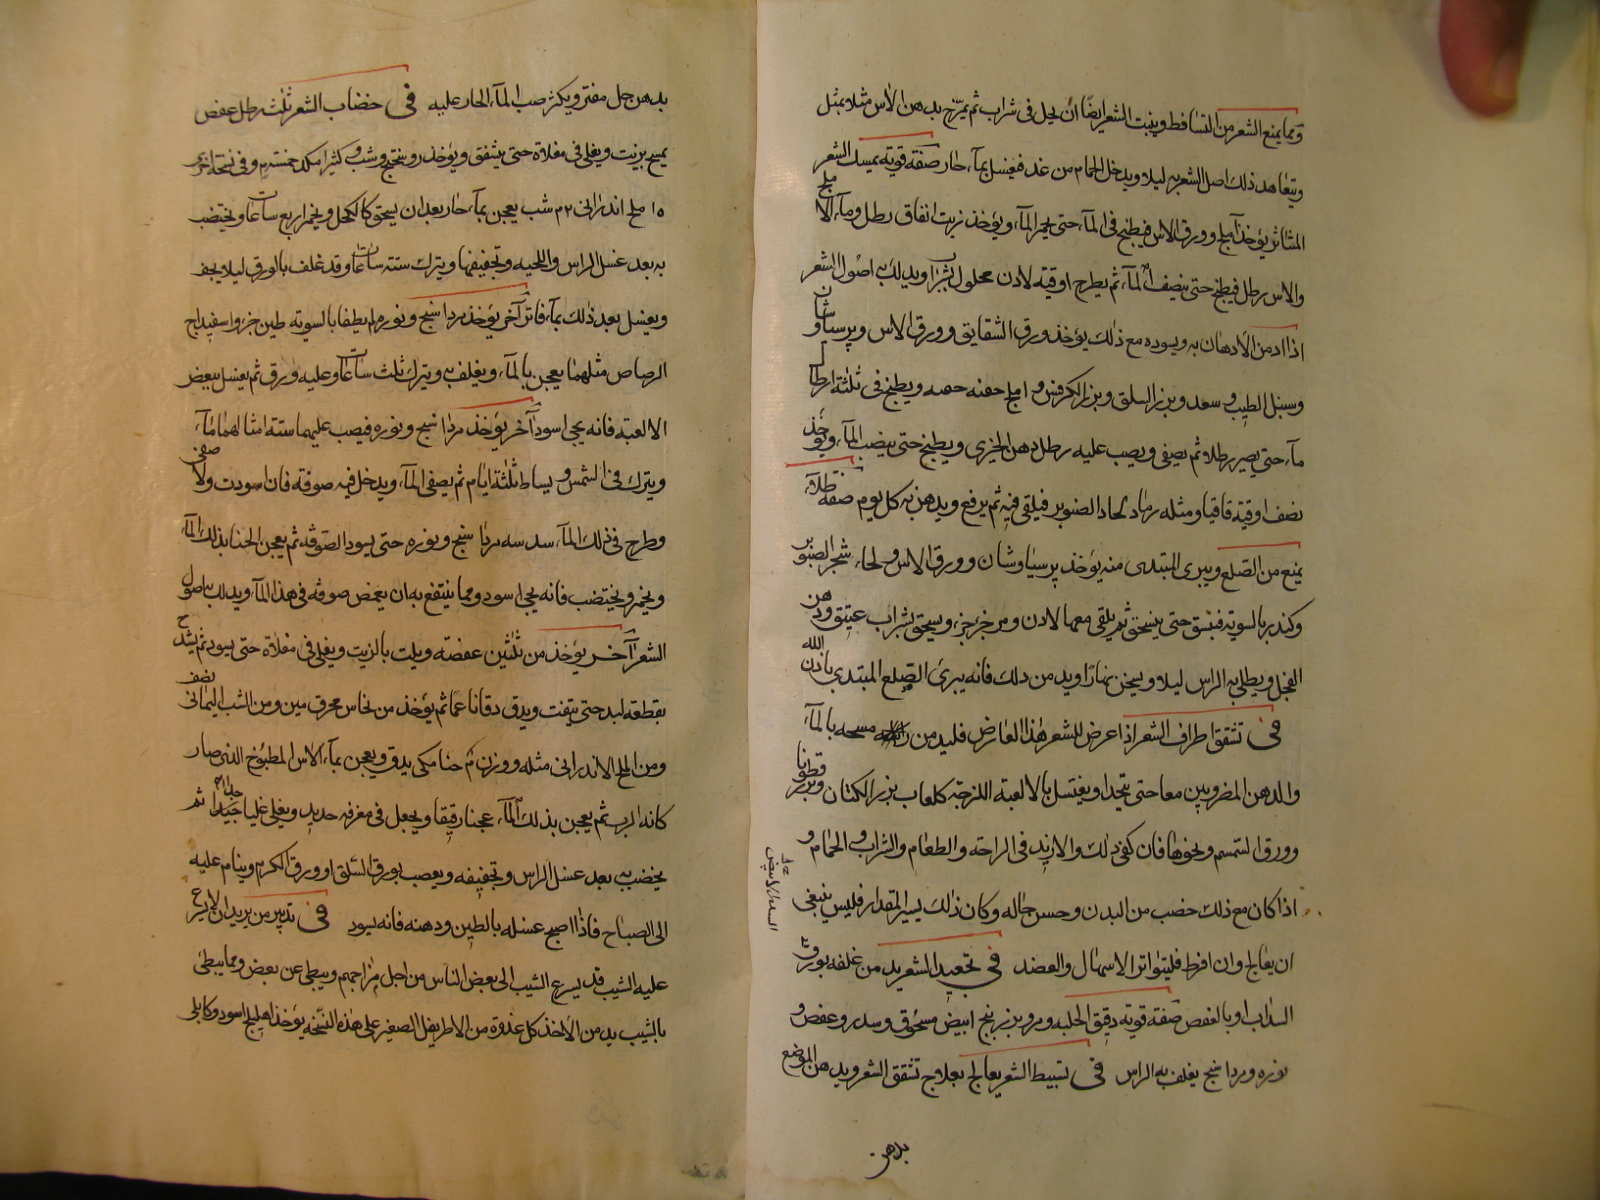 ومما يمنع الشعر من التساقط وينبت الشعر ايضا ان يحل فى شراب ثم يمزج بدهن الاس مثلا بمثل
ويتعاهد ذلك اصل الشعر به ليلا ويدخل الحمام من غد فيغسل بمآء حار صفة قوية يمسك الشعر
المتناثر يؤخذ آملج وورق الاس فيطبخ فى المآء حتى يحمر المآء ويؤخذ زيت انفاق رطل ومآء الاملج
والاس رطل فيطبخ حتى ينصف المآء ثم يطرح اوقية لادن محلول بشراب ويدلك به اصول الشعر
اذا ادمن الادهان به ويسوده مع ذلك يؤخذ ورق الشقايق وورق الاس وبرسياوشان
وسنبل الطيب وسعد وبزر السلق وبزر الكرفس و املج حفنه حفنه ويطبخ فى ثلثة ارطال
مآء حتى يصير رطلا ثم يصفى ويصب عليه رطل دهن الخيرى ويطبخ حتى ينضب المآء ويؤخذ
نصف اوقية قاقيا ومثله رماد لحاء الصنوبر فيلقى فيه ثم يرفع ويدهن به كل يوم صفة طلآء
يمنع من الصلع ويبرى المبتدى منه يؤخذ برسياوشان وورق الاس ولحاء شجر الصنوبر
وكندر بالسوية حتى ينسحق ثم يلقى معها لادن ومر جزء جزء ويسحق بشراب عتيق ودهن
الفجل ويطلى به الراس ليلا ويدمن ذلك فانه يبرئ الصلع المبتدى باذن الله
فى تشقق اطراف الشعر اذا عرض للشعر هذا العارض فليدمن مسحه بالمآء
والدهن المضروبين معا حتى يتحدا ويغتسل بالالعبة اللزجة كلعاب بزر الكتان وبزر قطونا
وورق السمسم ونحوها فان كفى ذلك والا زيد فى الراحة والطعام والشراب والحمام و
اذا كان مع ذلك خصب من البدن وحسن حاله وكان ذلك يسير المقدار فليس ينبغى
ان يعالج وان افرط فليتواتر الاسهال والفصد فى تجعيد الشعر يدمن غلفه بورق
السذاب او بالعفص صفة قوية دقيق الحلبه ومر وبزر بنج ابيض مسحوق وسدر وعفص و
نوره ومرداسنج يغلف به الراس فى تسبيط الشعر يعالج بعلاج تشقق الشعر ويدهن الموضع
بدهن
بدهن حل مفتر ويكثر صب المآء الحار عليه فى خضاب الشعر ثلثه رطل عفص
يمسح بزيت ويغلى فى مقلاة حتى يتشقق ويؤخذ روسختج وشب وكثيرا مكد خمسة م وفى نسخة اخرى
١٥ ملح اندرانى ٢ م شب يعجن بمآء حار بعد ان يسحق كالكحل ويخمر اربع ساعات ويختضب
به بعد غسل الراس واللحيه وتجفيفها ويترك ستة ساعات وقد غلف بالورق ليلا يجف
ويغسل بعد ذلك بمآء فاتر آخر يؤخذ مرداسنج ونوره لم يطفا بالسوية طين خز واسفيداج
الرصاص مثلهما يعجن بالمآء ويغلف به ويترك ثلث ساعات وعليه ورق ثم يغسل ببعض
الالعبة فانه يجى اسود آخر يؤخذ مرداسنج ونوره فيصب عليهما ستة امثالهما مآء
ويترك فى الشمس ويساط ثلثة ايام ثم يصفى المآء ويدخل فيه صوفة فان اسودت والا صفى
وطرح فى ذلك المآء سدسه مرداسنج ونوره حتى يسود الصوفه ثم يعجن الحنا بذلك المآء
ويخمر ويختضب فانه يجى اسود ومما ينتفع به ان يغمض صوفه فى هذا المآء ويدلك به اصول
الشعر آخر يؤخذ من ثلثين عفصة ويلت بالزيت ويغلى فى مقلاة حتى يسود ثم يشدخ
بقطعة لبد حتى يتفتت ويدق دقا ناعما ثم يؤخذ من نحاس محرق مين ومن الشب اليمانى نصف
ومن الملح الاندرانى مثله ووزن م حنا مكى يدق ويعجن بمآء الاس المطبوخ الذى صار
كانه الرب ثم يعجن بذلك المآء عجنا رقيقا ويجعل فى مغرفه حديد ويغلى غليا جيدا ثم
يخضب به بعد غسل الراس وتجفيفه ويعصب بورق السلق او ورق الكرم وينام عليه
الى الصباح فاذا اصبح غسله بالطين ودهنه فانه يسود فى تدبير من يريد ان لا يسرع
عليه الشيب قد يسرع الشيب الى بعض الناس من اجل مزاجهم ويبطى عن بعض ومما يبطى
بالشيب يدمن الاخذ كل غدوة من الاطريفل الصغير على هذه النسخه يؤخذ اهليلج اسود وكابلى